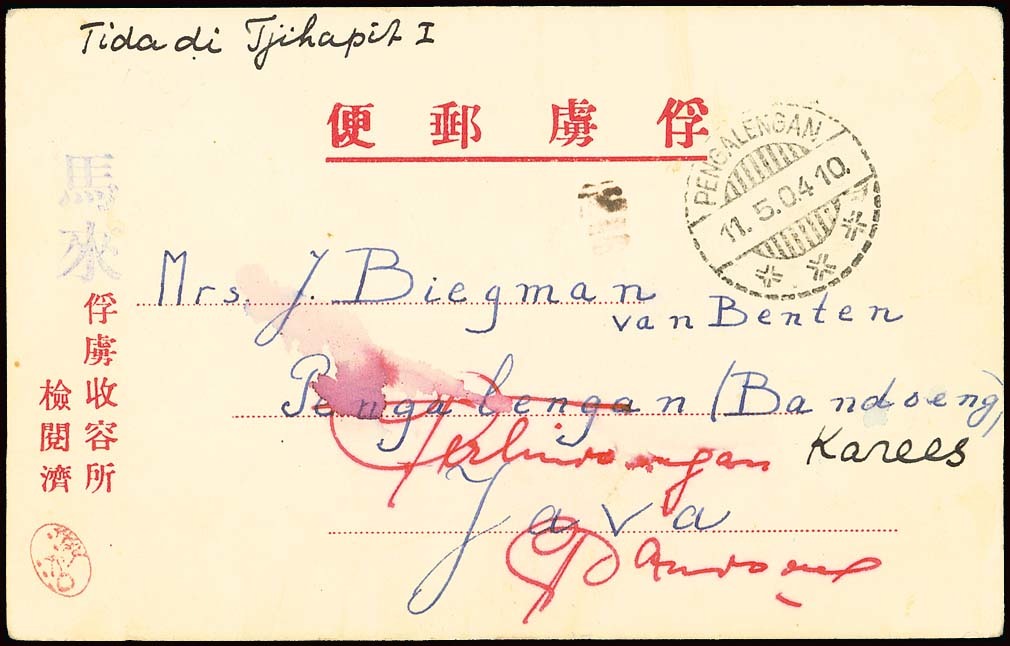 Tida di Tjihapit I
便郵虜俘
PENGALENGAN
11.5.04 10.
馬來
Mrs. J. Biegman
van Benten
Pengalengan (Bandoeng)
Karees
Perlindoengan
Java
Bandoeng
俘虜收容所
檢閱濟